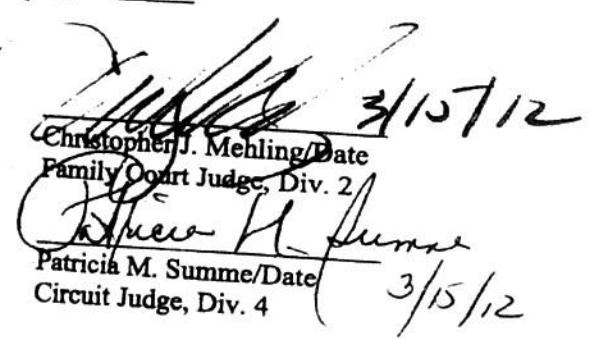 3/15/12
Christopher J. Mehling/Date
Family Court Judge, Div. 2
Patricia M. Summe
Patricia M. Summe/Date
3/15/12
Circuit Judge, Div. 4